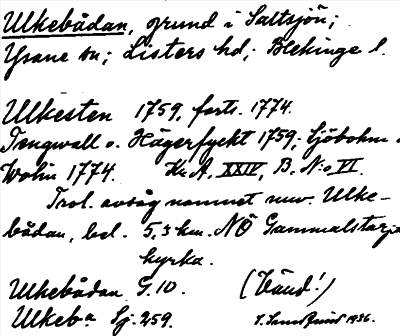 Ulkebådan, grund i Saltsjön;
Ysane sn; Listers hd; Blekinge l.
Ulkesten 1759, forts. 1774.
Tengwall o. Hägerflyckt 1759; Sjöbohm o.
Wolin 1774. Kr. A, XXIV, B. N:o VI.
Trol. avsåg namnet nuv. Ulke-
bådan, bel. 5,3 km. NÖ Gammalstorps
kyrka.
Ulkebådan G.10. (Vänd!)
Ulkeba Sj. 259. 1936.